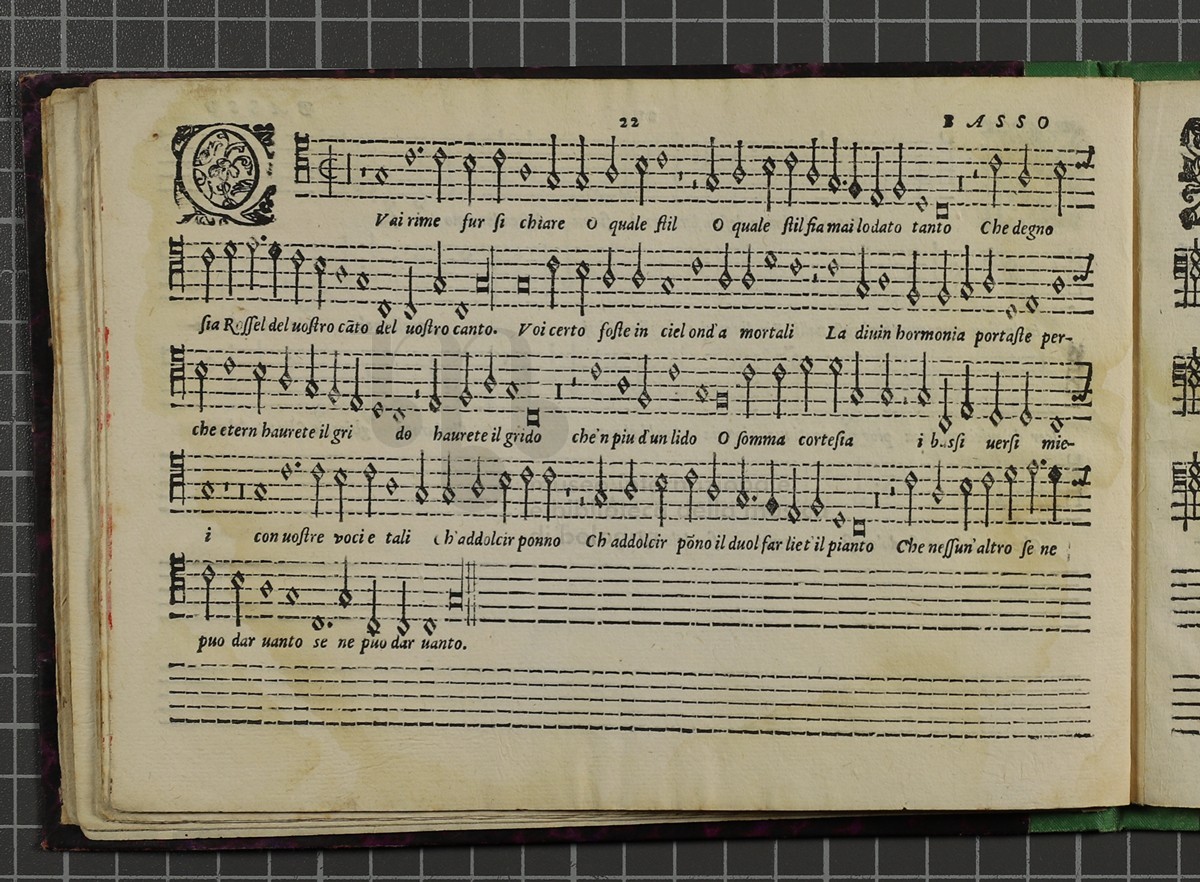 22
BASSO
QVai rime fur si chiare O quale stil O quale stil fia mai lodato tanto Che degno
sia Rossel del uostro cāto del uostro canto. Voi certo foste in ciel ond'a mortali La diuin hormonia portaste per-
che etern haurete il gri do haurete il grido che'n piu d'un lido O somma cortesia i bassi uersi mie-
i con uostre voci e tali ch'addolcir ponno Ch'addolcir pōno il duol far liet'il pianto Che nessun'altro se ne
puo dar uanto se ne puo dar uanto.